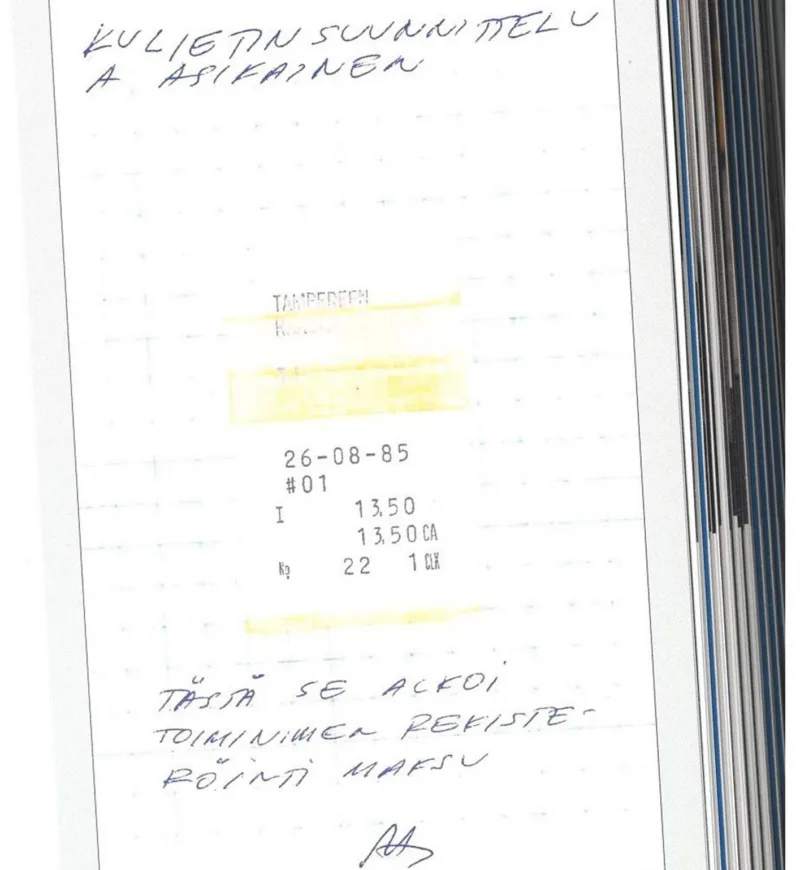 KULJETINSUUNNITTELU
A ASIKAINEN
TAMPEREEN
26-08-85
#01
I 13,50
13,50 CA
No 22 1 CLK
TÄSTÄ SE ALKOI
TOIMINIMEN REKISTE-
RÖINTI MAKSU